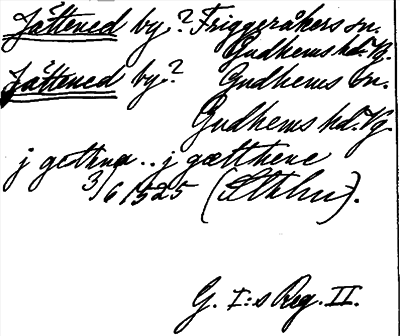 Jättened by? Friggeråkers sn.
Gudhems hd. Vg.
Jättened by? Gudhems sn.
Gudhems hd. Vg.
j gettna .. j gætthene
3/6 1525 ( ).
G. I:s Reg. II.